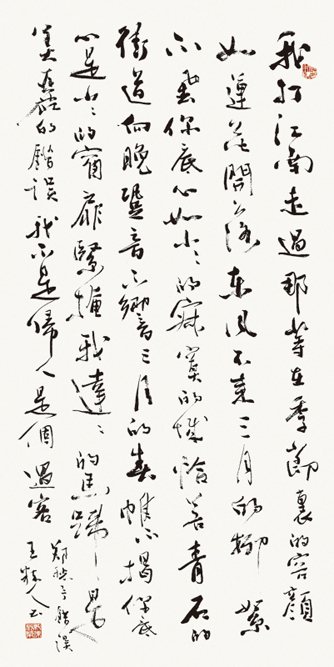 我打江南走過那等在季節裏的容顏
如蓮花開落東風不来三月的柳絮
不飛你底心如小〻的寂寞的城恰若青石的
街道向晚跫音不響三月的春帷不揭你底
心是小〻的窗扉緊掩我達〻的馬蹄是
美麗的錯誤我不是歸人是個過客
鄭愁予錯誤